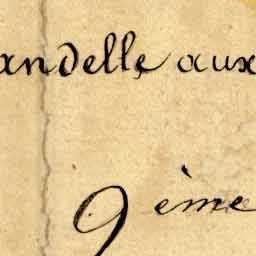 andelle aux
9 ème